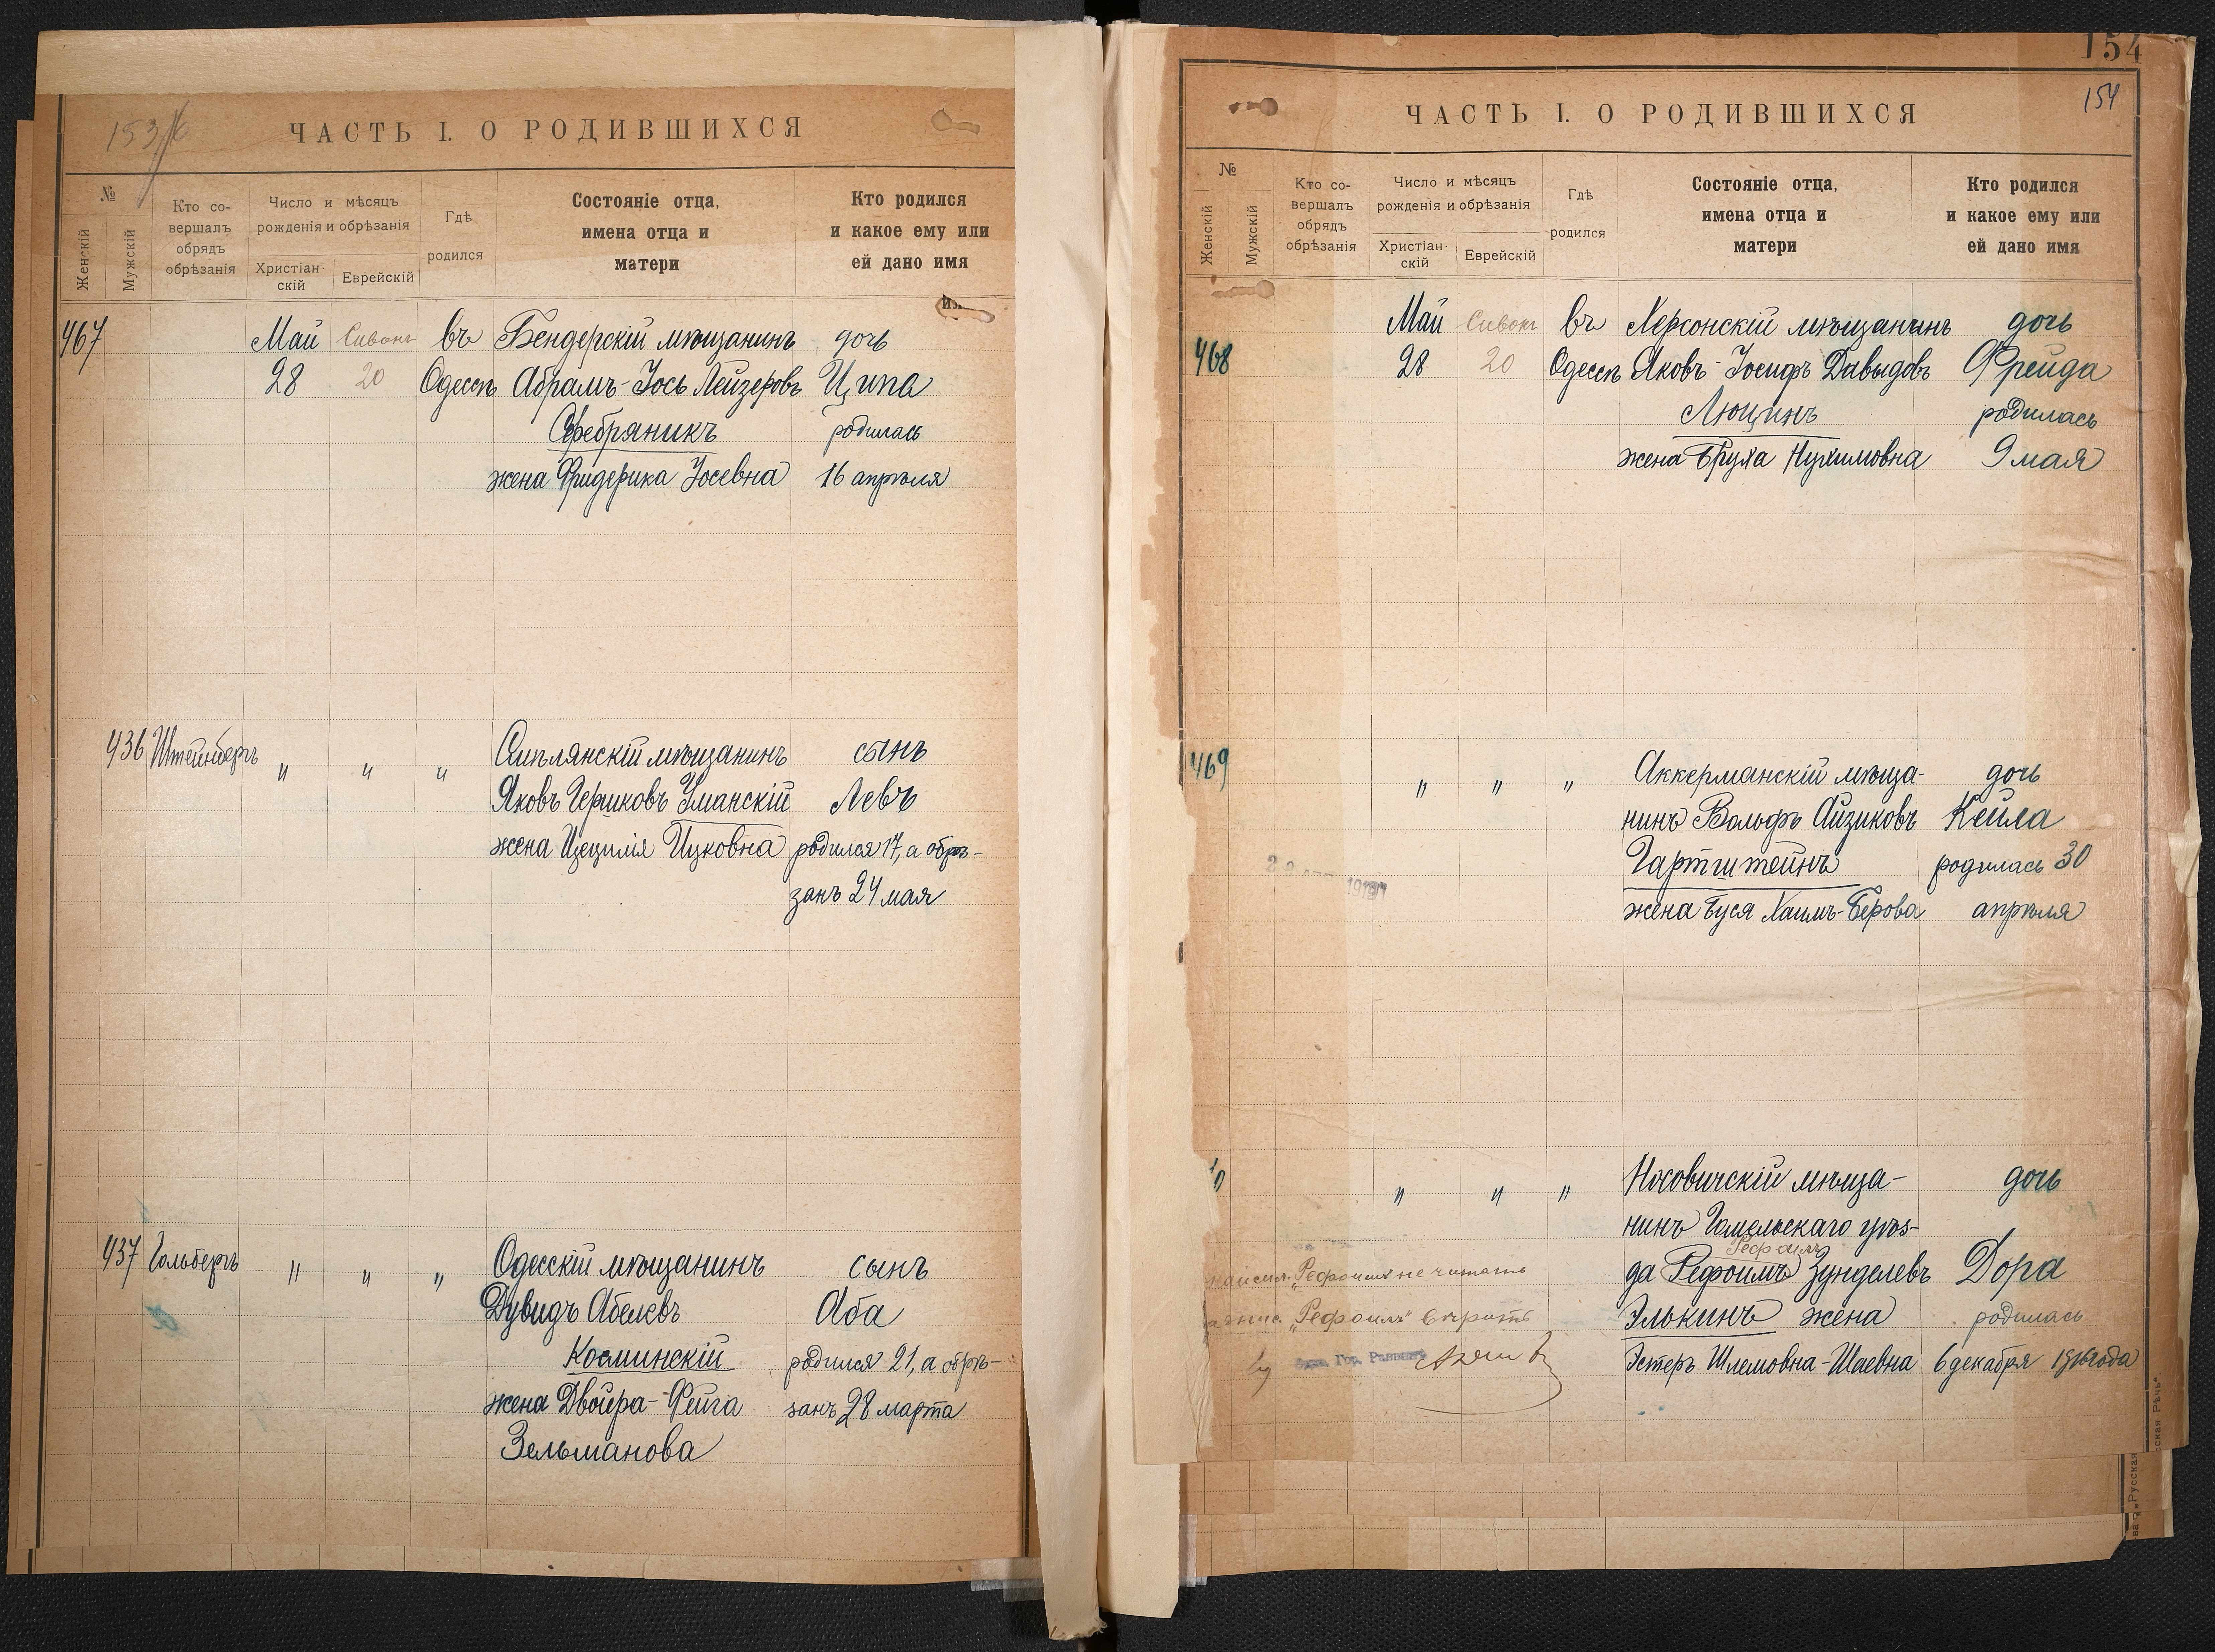 153/б
ЧАСТЬ I. О РОДИВШИХСЯ
№
Женскій
Мужскій
Кто со-
вершалъ
обрядъ
обрѣзанія
Число и мѣсяцъ
рожденія и обрѣзанія
Христіан-
скій
Еврейскій
Гдѣ
родился
Состояніе отца,
имена отца и
матери
Кто родился
и какое ему или
ей дано имя
467 Май Сивонъ въ Бендерскій мѣщанинъ дочь
28 20 Одессѣ Абрамъ-Іось Лейзеровъ Ципа
Серебряникъ родилась
жена Фридерика Іосевна 16 апрѣля
436 Штейнбергъ " " " мѣщанинъ сынъ
Яковъ Гершковъ Уманскій Левъ
жена Цецилія Ицковна родился 17, а обрѣ-
занъ 24 мая
437 Гольбергъ " " " Одесскій мѣщанинъ сынъ
Дувидъ Абелевъ Аба
Косминскій родился 21, а обрѣ-
жена Двойра-Фейга занъ 28 марта
Зельманова
154
154
ЧАСТЬ I. О РОДИВШИХСЯ
№
Женскій
Мужскій
Кто со-
вершалъ
обрядъ
обрѣзанія
Число и мѣсяцъ
рожденія и обрѣзанія
Христіан-
скій
Еврейскій
Гдѣ
родился
Состояніе отца,
имена отца и
матери
Кто родился
и какое ему или
ей дано имя
468 Май Сивонъ въ Херсонскій мѣщанинъ дочь
28 20 Одессѣ Яковъ-Іосифъ Давыдовъ Фрейда
Люцинъ родилась
жена Бруха Нухимовна 9 мая
469 " " " Аккерманскій мѣща-
дочь
нинъ Вольфъ Айзиковъ Кейла
Гартштейнъ родилась 30
жена Буся Хаимъ-Берова апрѣля
0 " " " Носовичскій мѣща-
дочь
нинъ Гомельскаго уѣз-
Рефоилъ
да Рефоимъ Зунделевъ Дора
"Рефоимъ" не читать
Элькинъ жена родилась
"Рефоилъ" вѣрить
Эстеръ Шлемовна-Шаевна 6 декабря 1916 года
Гор. Раввинъ